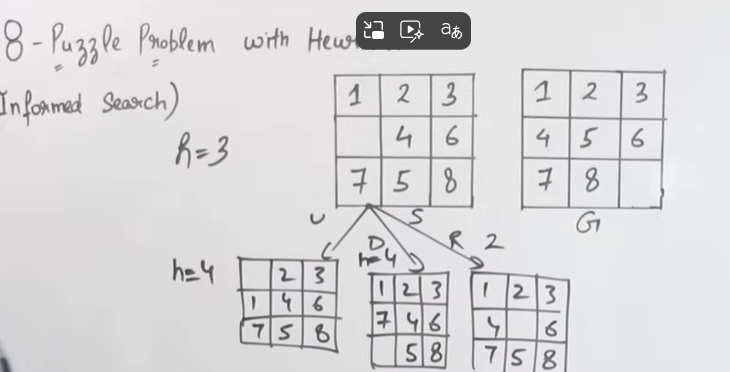 8-Puzzle Problem with
Informed Search)
h=3
1 2 3
4 6
7 5 8
S
1 2 3
4 5 6
7 8
G
U
D
R 2
h=4
h=4
2 3
1 4 6
7 5 8
1 2 3
7 4 6
5 8
1 2 3
4 6
7 5 8